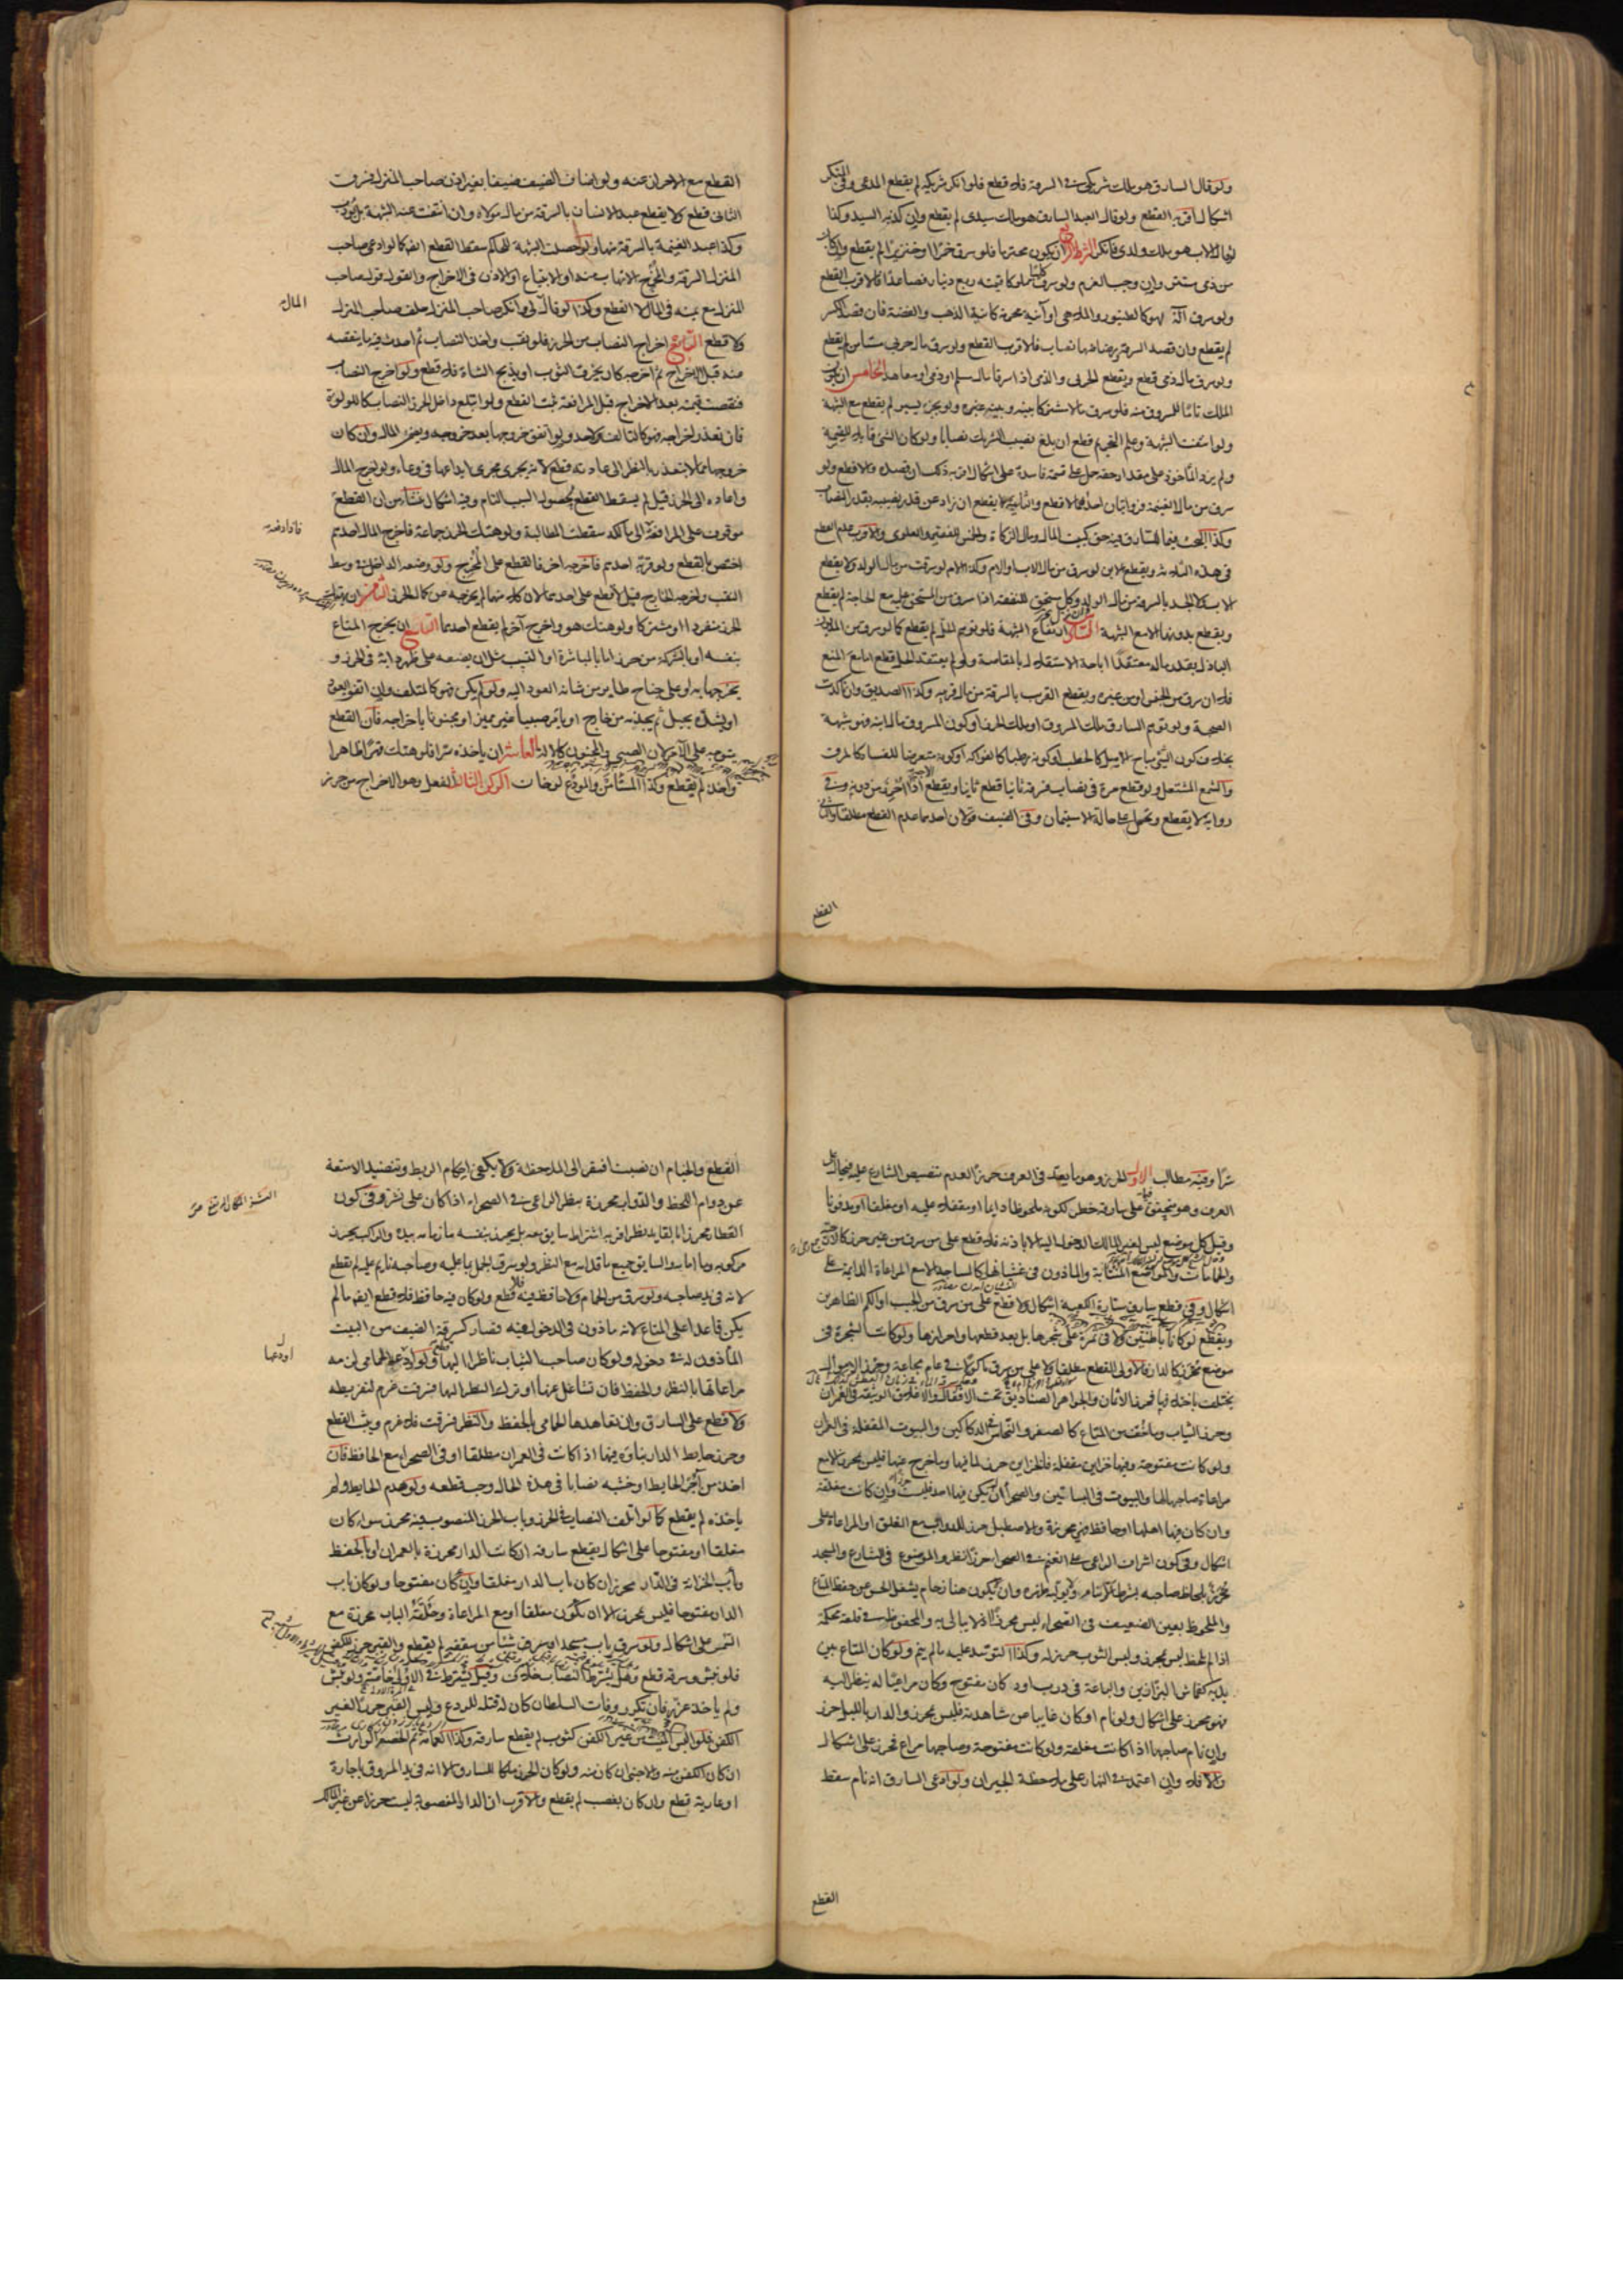 ولو قال السارق هو ملك شريكي في السرقة فلا قطع فلو انكر شريكه لم يقطع المدعي وفي المنكر
اشكال اقربه القطع ولو قال العبد السارق هو ملك سيدي لم يقطع وان كذبه السيد وكذا
لو قال الاب هو ملك ولدي فانكر الشرط الرابع ان يكون محترما فلو سرق خمرا او خنزيرا لم يقطع وان كان
من ذمي مستتر وان وجب الغرم ولو سرق كلبا مملوكا قيمته ربع دينار فصاعدا فالاقرب القطع
ولو سرق آلة لهو كالطنبور والملاهي او آنية محرمة كآنية الذهب والفضة فان قصد الكسر
لم يقطع وان قصد السرقة ورضاضها نصاب فالاقرب القطع ولو سرق مال حربي مستامن لم يقطع
ولو سرق مال ذمي قطع ويقطع الحربي والذمي اذا سرقا مال مسلم او ذمي او معاهد الخامس ان يكون
الملك تاما للمسروق منه فلو سرق مالا مشتركا بينه وبين غيره ولو بجزء يسير لم يقطع مع الشبهة
ولو انتفت الشبهة وعلم التحريم قطع ان بلغ نصيب الشريك نصابا ولو كان الشئ قابلا للقسمة
ولم يزد الماخوذ على مقدار حقه حمل على قسمة فاسدة على اشكال اقربه ذلك ان قصده والا قطع ولو
سرق من مال الغنيمة فروايتان احدهما لا قطع والثانية لا يقطع ان زاد عن قدر نصيبه بقدر النصاب
وكذا البحث فيما للسارق فيه حق كبيت المال ومال الزكاة والخمس للفقير والعلوي والاقرب عدم القطع
في هذه الثلاثة ويقطع الابن لو سرق من مال الاب او الام وكذا الام لو سرقت من مال الولد ولا يقطع
الاب ولا الجد بالسرقة من مال الولد وكل مستحق للنفقة اذا سرق من المستحق عليه مع الحاجة لم يقطع
ويقطع بدونها الا مع الشبهة السادس ارتفاع الشبهة فلو توهم الحل لم يقطع كما لو سرق من المديون
الباذل بقدر ماله معتقدا اباحة الاستقلال بالمقاصة ولو لم يعتقد الحل قطع اما مع المنع
فلا ان سرق من الجنس او من غيره ويقطع القريب بالسرقة من مال قريبه وكذا الصديق وان تاكدت
الصحبة ولو توهم السارق ملك المسروق او ملك الحرز او كون المسروق مال ابنه فهو شبهة
بخلاف كون الشئ مباح الاصل كالحطب او كونه رطبا كالفواكه او كونه متعرضا للفساد كالمرقة
والشمع المشتعل ولو قطع مرة في نصاب فسرقه ثانيا قطع ثانيا ويقطع الاجير اذا احرز من دونه وفي
رواية لا يقطع وتحمل على حالة الاستيمان وفي الضيف قولان احدهما عدم القطع مطلقا والثاني
القطع
القطع مع الاحراز عنه ولو اضاف الضيف ضيفا بغير اذن صاحب المنزل فسرق
الثاني قطع ولا يقطع عبد الانسان بالسرقة من مال مولاه وان انتفت عنه الشبهة بل يؤدب
وكذا عبد الغنيمة بالسرقة منها ولو حصلت الشبهة للحاكم سقط القطع ايضا كما لو ادعى صاحب
المنزل السرقة والمخرج الاتهاب منه او الابتياع او الاذن في الاخراج والقول قول صاحب
المنزل مع يمينه في المال لا القطع وكذا لو قال المال لي وانكر صاحب المنزل حلف صاحب المنزل
ولا قطع السابع اخراج النصاب من الحرز فلو نقب واخذ النصاب ثم احدث فيه ما ينقصه
منه قبل الاخراج ثم اخرجه كان يخرق الثوب او يذبح الشاة فلا قطع ولو اخرج النصاب
فنقصت قيمته بعد الاخراج قبل المرافعة ثبت القطع ولو ابتلع داخل الحرز النصاب كاللؤلؤة
فان تعذر اخراجه فهو كالتالف فلا حد ولو اتفق خروجها بعد خروجه ويضمن المال وان كان
خروجها مما لا يتعذر بالنظر الى عادته قطع لانه يجري مجرى ايداعها في وعاء ولو اخرج المال
واعاده الى الحرز قيل لم يسقط القطع لحصول السبب التام وفيه اشكال ينشأ من ان القطع
موقوف على المرافعة فاذا رفعه الى مالكه سقطت المطالبة ولو هتك الحرز جماعة فاخرج المال احدهم
اختص بالقطع ولو قربه احدهم فاخرجه اخر فالقطع على المخرج ولو وضعه الداخل في وسط
النقب واخرجه الخارج قيل لا قطع على احدهما لان كلا منهما لم يخرجه عن كمال الحرز الثامن ان يهتك
الحرز منفردا او مشتركا ولو هتك هو واخرج آخر لم يقطع احدهما التاسع ان يخرج المتاع
بنفسه او بالشركة من حرز اما بالمباشرة او التسبيب مثل ان يضعه على ظهر دابة في الحرز و
يخرجها به او على جناح طاير من شانه العود اليه ولو لم يكن فهو كالمتلف وان اتفق العود
او يشده بحبل ثم يجذبه من خارج او يأمر صبيا غير مميز او مجنونا باخراجه فان القطع
يتوجه على الآمر لان الصبي والمجنون كالآلة العاشر ان ياخذه سرا فلو هتك قهرا ظاهرا
واخذ لم يقطع وكذا المستأمن والمودع لو خان الركن الثالث الفعل وهو الاخراج من حرز
المال
سرا وفيه مطالب الاول الحرز وهو ما يعد في العرف حرزا لعدم تنصيص الشارع عليه فيحال على
العرف وهو متحقق فيما على سارقه خطر لكونه ملحوظا دائما او مقفلا عليه او مغلقا او مدفونا
وقيل كل موضع ليس لغير المالك الدخول اليه الا باذنه فلا قطع على من سرق من غير حرز كالارحية
والحمامات والمواضع المنتابة والماذون في غشيانها كالمساجد الا مع المراعاة الدايمة على
اشكال وفي قطع سارق ستارة الكعبة اشكال ولا قطع على من سرق من الجيب او الكم الظاهرين
ويقطع لو كانا باطنين ولا في ثمرة على شجرها بل بعد قطعها واحرازها ولو كانت الشجرة في
موضع محرز كالدار فالاولى القطع مطلقا ولا على من سرق ماكولا في عام مجاعة وحرز الاموال
يختلف باختلافها فحرز الاثمان والجواهر الصناديق تحت الاقفال والاغلاق الوثيقة في العمران
وحرز الثياب وما خف من المتاع كالصفر والنحاس الدكاكين والبيوت المقفلة في العمران
ولو كانت مفتوحة وفيها خزاين مقفلة فالخزاين حرز لما فيها وما خرج عنها فليس بمحرز الا مع
مراعاة صاحبها لها والبيوت في البساتين والصحراء ان لم يكن فيها احد فليست حرزا وان كانت مغلقة
وان كان فيها اهلها او حافظ فهي محرزة والاصطبل حرز للدواب مع الغلق او المراعاة على
اشكال وفي كون اشراف الراعي على الغنم في الصحراء حرزا نظر والموضوع في الشارع والمسجد
محرز بلحاظ صاحبه بشرط ان لا ينام ولا يوليه ظهره وان لا يكون هناك زحام يشغل الحس عن حفظ المتاع
والملحوظ بعين الضعيف في الصحراء ليس محرزا اذ لا يبالي به والمحفوظ في قلعة محكمة
اذا لم يلحظ ليس بمحرز وليس الثوب حرزا له وكذا لو توسد عليه ما لم ينم ولو كان المتاع بين
يديه كقماش البزازين والباعة في درب او دكان مفتوح وكان مراعيا له ينظر اليه
فهو محرز على اشكال ولو نام او كان غايبا عن مشاهدته فليس بمحرز والدار بالليل حرز
وان نام صاحبها اذا كانت مغلقة ولو كانت مفتوحة وصاحبها مراع فحرز على اشكال
والا فلا وان اعتمد في النهار على ملاحظة الجيران ولو ادعى السارق انه نام سقط
القطع
القطع والخيام ان نصبت افتقر الى الملاحظة ولا يكفي احكام الربط وتنضيد الامتعة
عن دوام اللحظ والدواب محرزة بنظر الراعي في الصحراء اذا كان على نشز وفي كون
القطار محرزا بالقايد نظر اقربه اشتراط سايق معه بل يحرز بنفسه ما زمامه بيده والراكب يحرز
مركوبه وما امامه والسايق جميع ما قدامه مع النظر ولو سرق الجمل بما عليه وصاحبه نايم عليه لم يقطع
لانه في يد صاحبه ولو سرق من الحمام ولا حافظ فيه فلا قطع ولو كان فيه حافظ فلا قطع ايضا ما لم
يكن قاعدا على المتاع لانه ماذون في الدخول فيه فصار كسرقة الضيف من البيت
المأذون له في دخوله ولو كان صاحب الثياب ناظرا اليها قطع ولو اودعها الحمامي لزمه
مراعاتها بالنظر والحفظ فان تشاغل عنها او ترك النظر اليها فسرقت غرم لتفريطه
ولا قطع على السارق وان تعاهدها الحمامي بالحفظ والنظر فسرقت فلا غرم ويثبت القطع
وحرز حايط الدار بناؤه فيها اذا كانت في العمران مطلقا او في الصحراء مع الحافظ فان
اخذ من آجر الحايط او خشبه نصابا في هذه الحال وجب قطعه ولو هدم الحايط ولم
ياخذه لم يقطع كما لو اتلف النصاب في الحرز وباب الحرز المنصوب فيه محرز سواء كان
مغلقا او مفتوحا على اشكال يقطع سارقه ان كانت الدار محرزة بالعمران او بالحفظ
وباب الخزانة في الدار محرز ان كان باب الدار مغلقا وان كان مفتوحا ولو كان باب
الدار مفتوحا فليس بمحرز الا ان تكون مغلقا او مع المراعاة وحلقة الباب محرزة مع
التسمر على اشكال ولو سرق باب مسجد او سرق شيئا من سقفه لم يقطع والقبر حرز للكفن
فلو نبش وسرقه قطع وهل يشترط النصاب خلاف وقيل يشترط في الاولى خاصة ولو نبش
ولم ياخذ عزر فان تكرر وفات السلطان كان له قتله للردع وليس القبر حرزا لغير
الكفن فلو البس الميت من غير الكفن كثوب لم يقطع سارقه وكذا العمامة ثم الخصم الوارث
ان كان الكفن منه والاجنبي ان كان منه ولو كان الحرز ملكا للسارق الا انه في يد المسروق باجارة
او عارية قطع وان كان بغصب لم يقطع والاقرب ان الدار المغصوبة ليست حرزا عن غير المالك